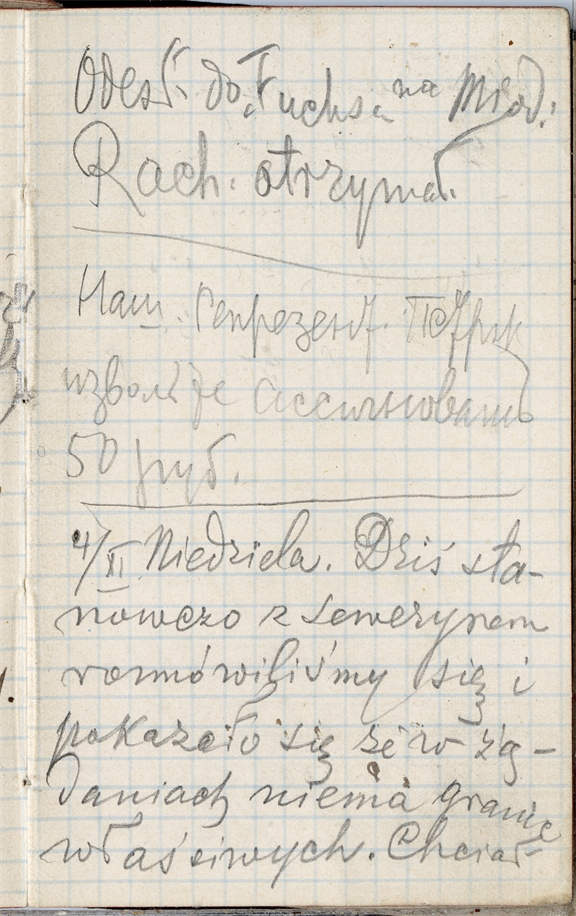 Odesł. do Fuchsa na Miod:
Rach. otrzymał.
Наш.
извольте ассигновать
50 руб.
4/XI Niedziela. Dziś sta-
nowczo z Sewerynem
rozmówiliśmy się i
pokazało się że w żą-
daniach niema granic
właściwych. Chciał